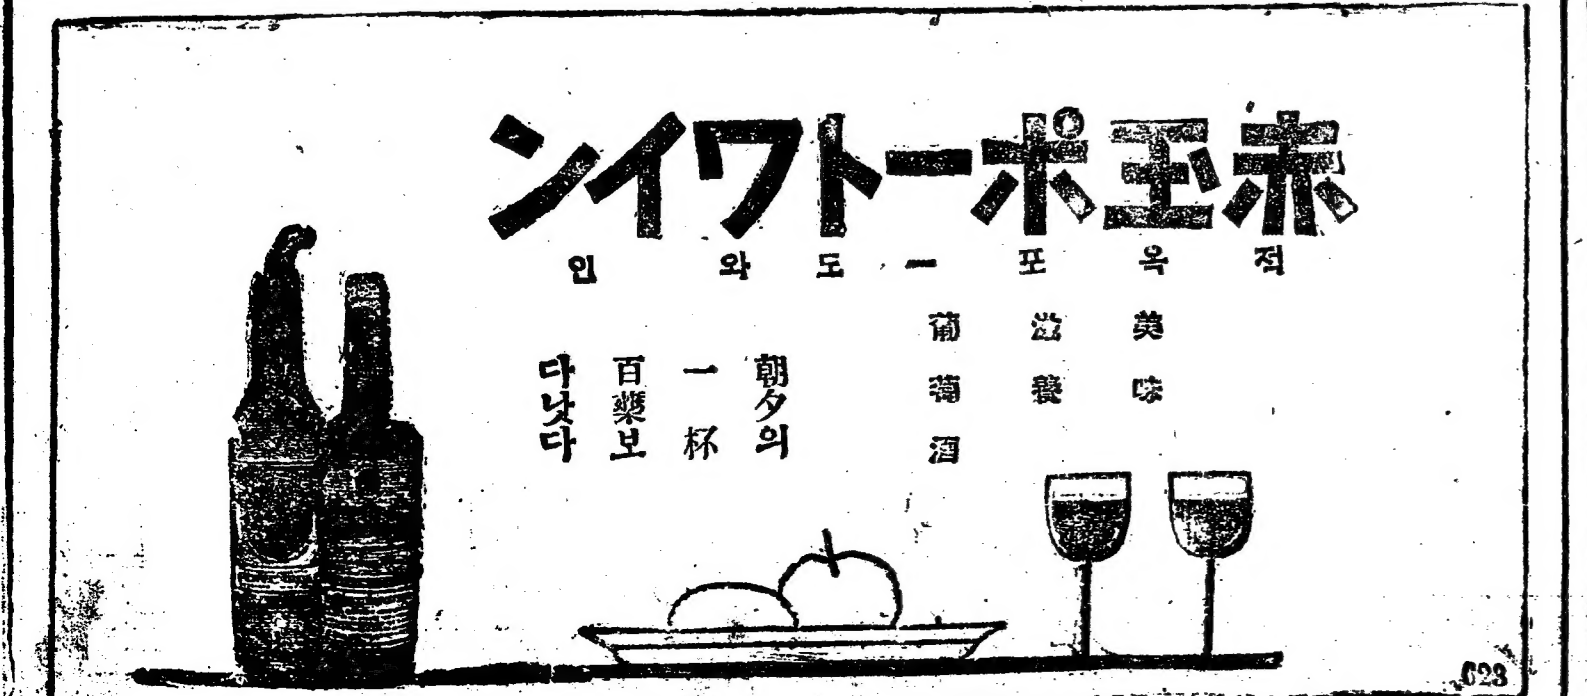 赤玉ポートワイン
적옥포ー도와인
美味
滋養
葡萄酒
朝夕의
一杯
百藥보
다낫다
623